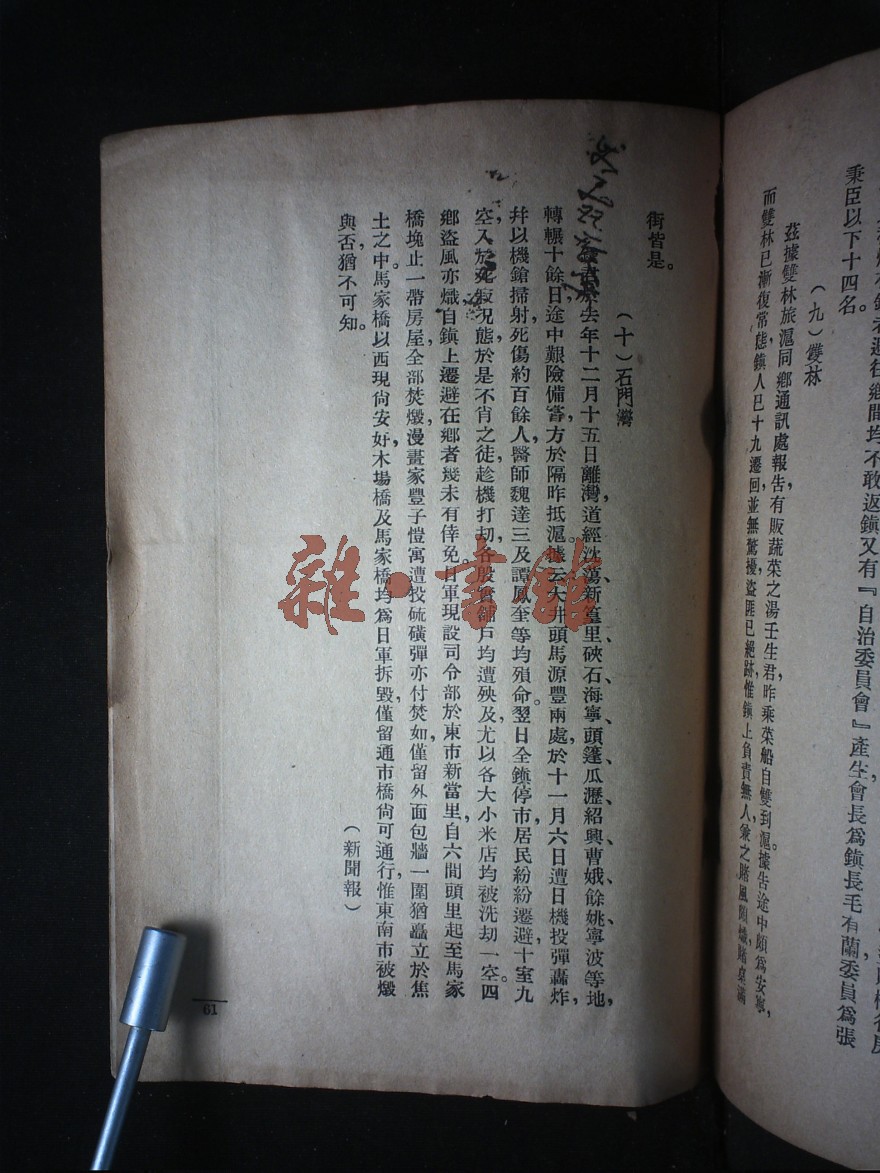 者避往鄉間均不敢返鎮又有『自治委員會』產生會長爲鎮長毛有蘭委員爲張
秉臣以下十四名。
（九）雙林
茲據雙林旅滬同鄉通訊處報告有販蔬菜之湯壬生君昨乘菜船自雙到滬。據告途中頗爲安寧，
而雙林已漸復常態，鎮人已十九遷回並無驚擾，盜匪已絕跡惟鎮上負責無人，兼之賭風頗熾，賭桌滿
街皆是。
（十）石門灣
於去年十二月十五日離灣，道經沈蕩、新篁里、硤石、海寧、頭蓬、瓜瀝、紹興、曹娥、餘姚、寧波等地，
轉輾十餘日，途中艱險備嘗，方於隔昨抵滬。據云大井頭馬源豐兩處於十一月六日遭日機投彈轟炸，
幷以機鎗掃射，死傷約百餘人，醫師魏達三及譚鳳奎等均殞命。翌日全鎮停市，居民紛紛遷避，十室九
空，入於死寂况態，於是不肖之徒趁機打刧，各殷實舖戶均遭殃及，尤以各大小米店均被洗刧一空。四
鄉盜風亦熾，自鎮上遷避在鄉者幾未有倖免。日軍現設司令部於東市新當里，自六間頭里起至馬家
橋堍止一帶房屋全部焚燬，漫畫家豐子愷寓遭投硫磺彈亦付焚如，僅留外面包牆一圍猶矗立於焦
土之中。馬家橋以西現尙安好，木場橋及馬家橋均爲日軍拆毀，僅留通市橋尙可通行，惟東南市被燬
與否，猶不可知。
（新聞報）
61
雜·書館